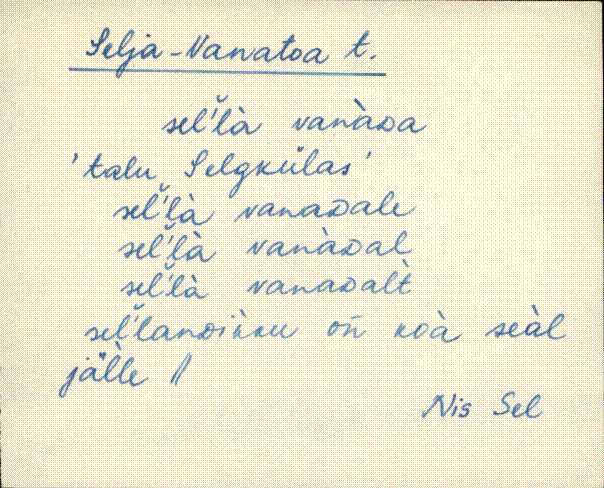 Selja-Vanatoa t.
sel̆'l̀à vanàᴅa
'talu Selgkülas'
sel̆'l̀à vanaᴅale
sel̆'l̀à vanàᴅal
sel̆'l̀à vanaᴅal̀t
sel̆'lanᴅik̀ku on̄ koà seàl
jäl̀le //
Nis Sel